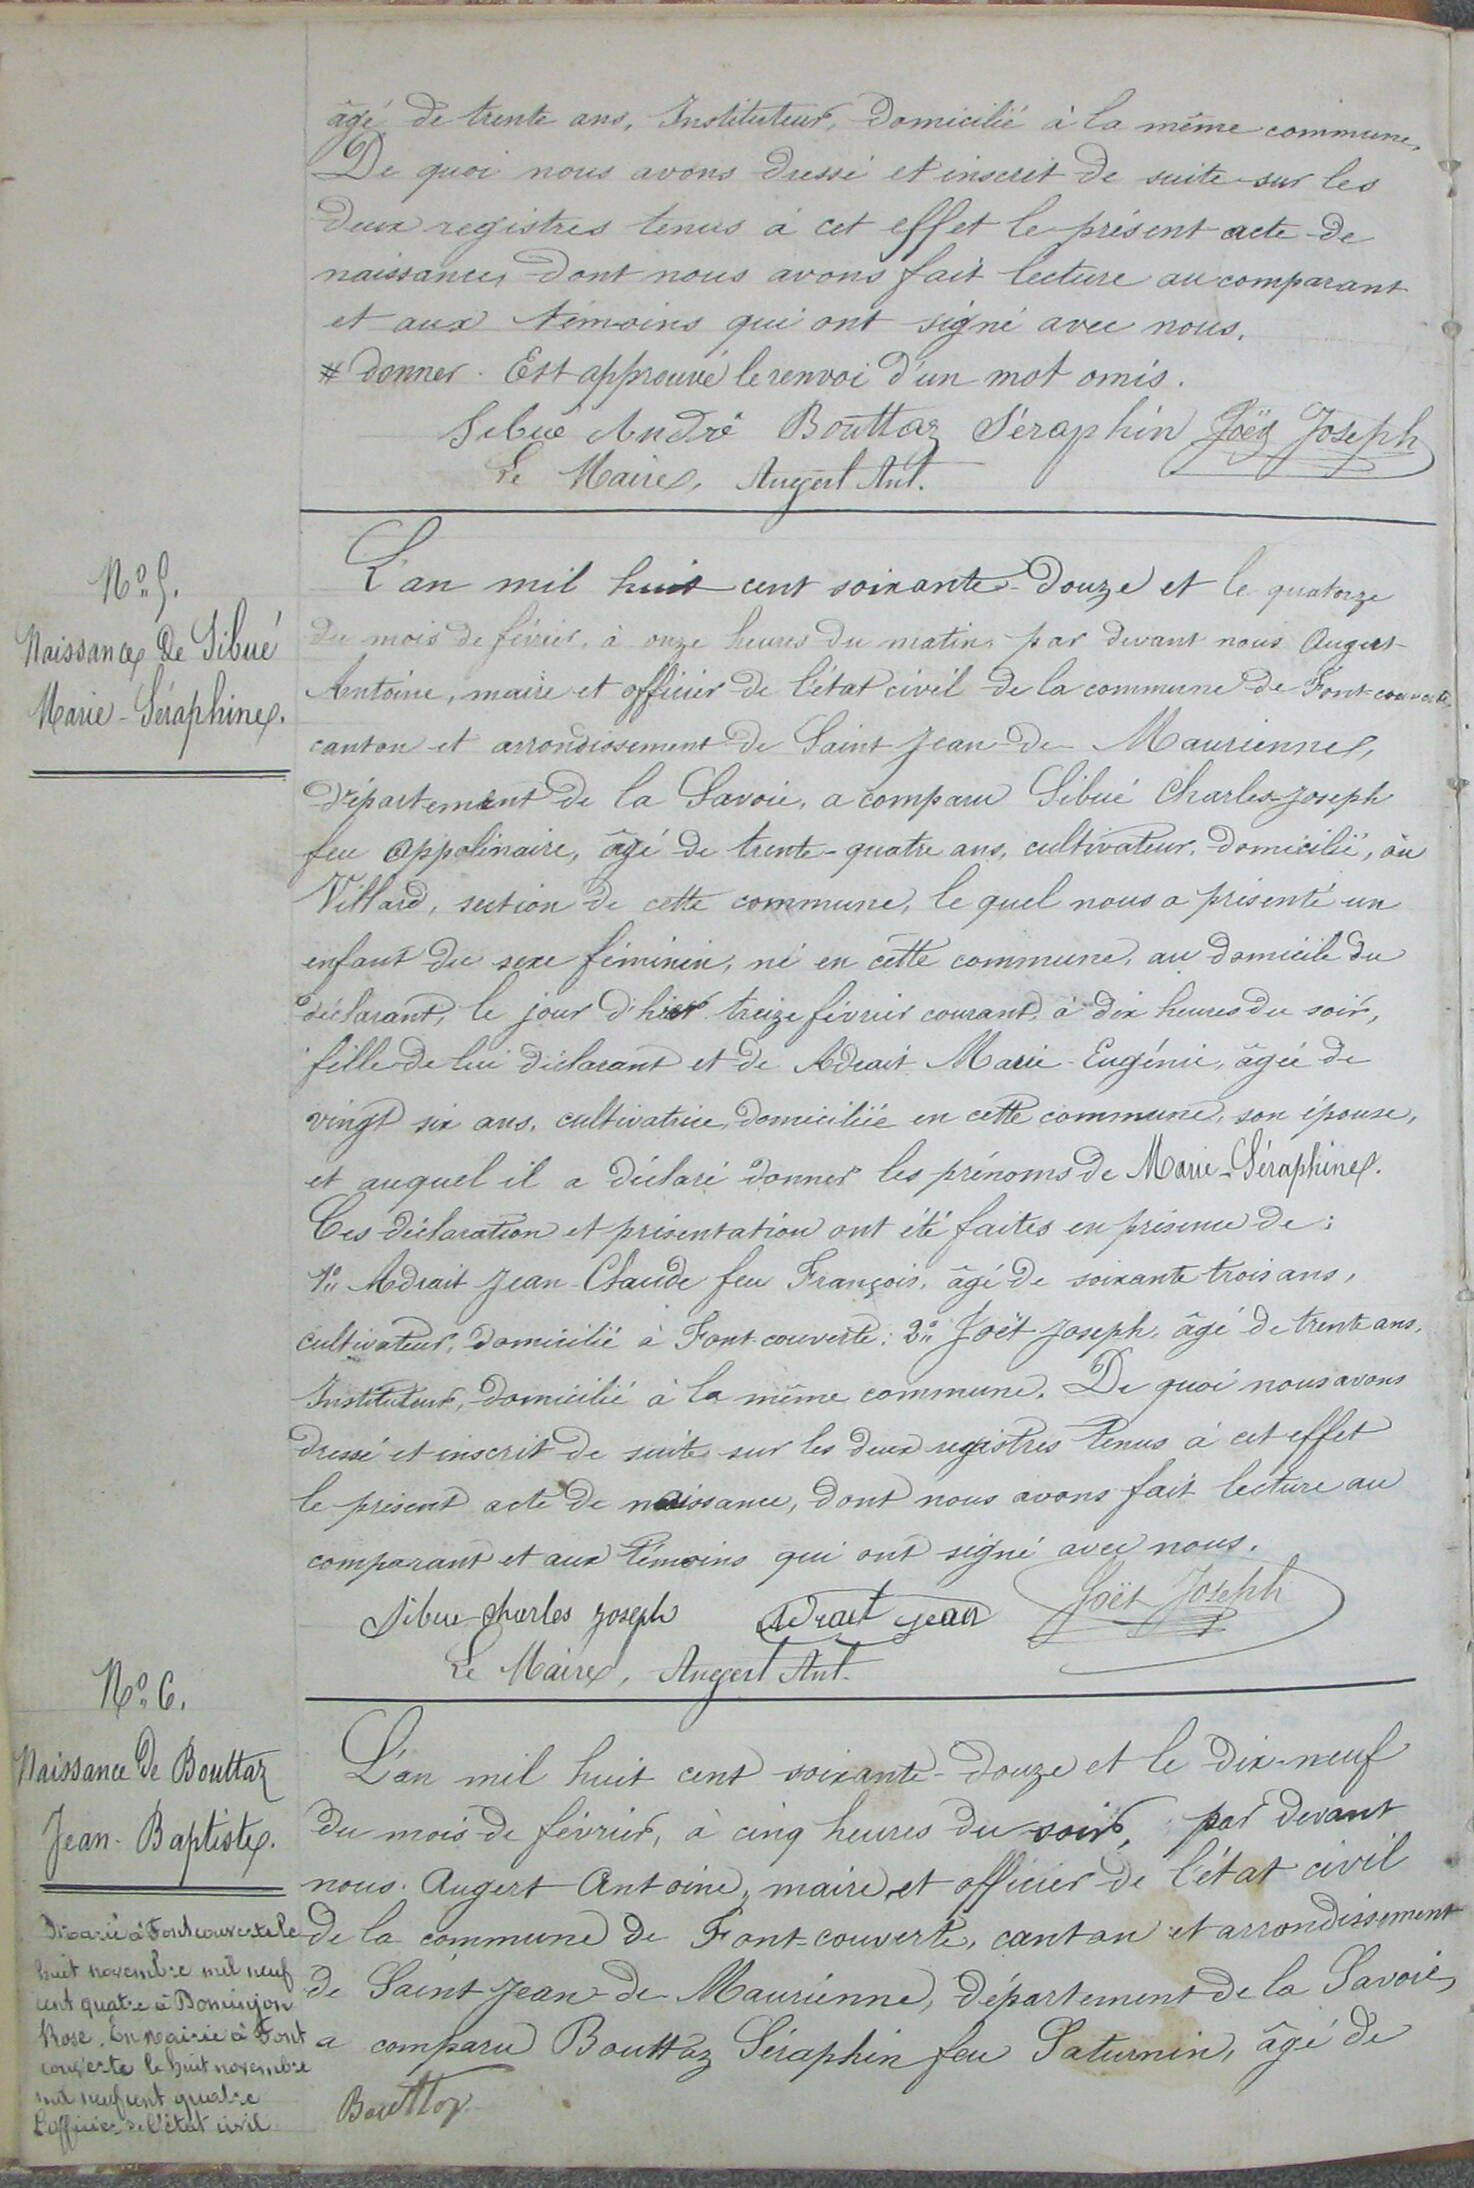 âgé de trente ans, Instituteur, domicilié à la même commune,
De quoi nous avons dressé et inscrit de suite sur les
deux registres tenus à cet effet le présent acte de
naissance, dont nous avons fait lecture au comparant
et aux témoins qui ont signé avec nous.
# donner. Est approuvé le renvoi d'un mot omis.
Sibué André Bouttaz Séraphin Joët Joseph
Le Maire, Augert Ant.
No. 5.
Naissance de Sibué
Marie-Séraphine.
L'an mil huit cent soixante-douze et le quatorze
du mois de février, à onze heures du matin, par devant nous Augert
Antoine, maire et officier de l'état civil de la commune de Font-couverte,
canton et arrondissement de Saint Jean-de-Maurienne,
département de la Savoie, a comparu Sibué Charles-Joseph
feu Appolinaire, âgé de trente-quatre ans, cultivateur, domicilié, au
Villard, section de cette commune, le quel nous a présenté un
enfant du sexe féminin, né en cette commune, au domicile du
déclarant, le jour d'hier treize février courant, à dix heures du soir,
fille de lui déclarant et de Adrait Marie-Eugénie, âgée de
vingt six ans, cultivatrice, domiciliée en cette commune, son épouse,
et auquel il a déclaré donner les prénoms de Marie-Séraphine.
Ces déclaration et présentation ont été faites en présence de:
1o Adrait Jean-Claude feu François, âgé de soixante trois ans,
cultivateur, domicilié à Font-couverte: 2o Joët Joseph, âgé de trente ans,
Instituteur, domicilié à la même commune. De quoi nous avons
dressé et inscrit de suite sur les deux registres tenus à cet effet
le présent acte de naissance, dont nous avons fait lecture au
comparant et aux témoins qui ont signé avec nous.
Sibue Charles Joseph Adrait jean Joët Joseph
Le Maire, Augert Ant.
No. 6.
Naissance de Bouttaz
Jean-Baptiste.
Marié à Fontcouverte le
huit novembre mil neuf
cent quatre à Bonnivjon
Rose. En Mairie à Font
couverte le huit novembre
mil neuf cent quatre
L'officier de l'état civil
L'an mil huit cent soixante-douze et le dix-neuf
du mois de février, à cinq heures du soir, par devant
nous Augert Antoine, maire et officier de l'état civil
de la commune de Font-couverte, canton et arrondissement
de Saint Jean-de-Maurienne, département de la Savoie,
a comparu Bouttaz Séraphin feu Saturnin, âgé de
Bouttaz